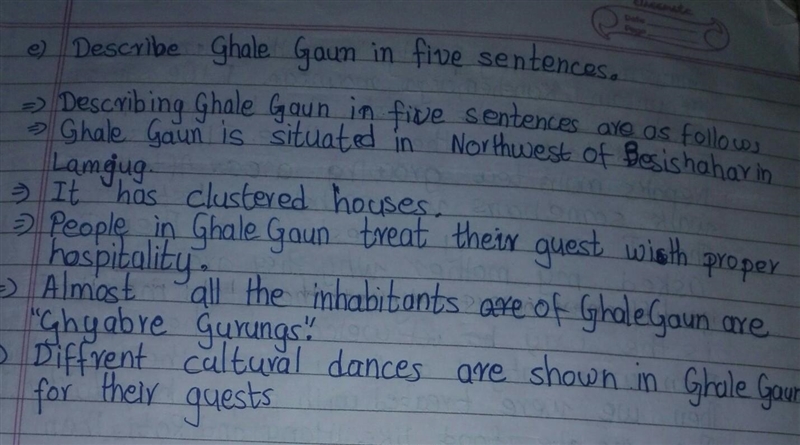 e) Describe Ghale Gaun in five sentences.
=> Describing Ghale Gaun in five sentences are as follows
=> Ghale Gaun is situated in Northwest of Besishahar in
Lamgjug.
=> It has clustered houses.
=> People in Ghale Gaun treat their guest with proper
hospitality.
=> Almost all the inhabitants are of Ghale Gaun are
"Ghyabre Gurungs".
Diffrent cultural dances are shown in Ghale Gaun
for their guests